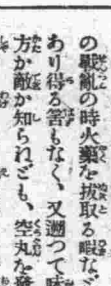 の戰亂の時火藥を拔取る暇など
あり得る筈もなく、又遡つて味
方か敵か知られども、空丸を發